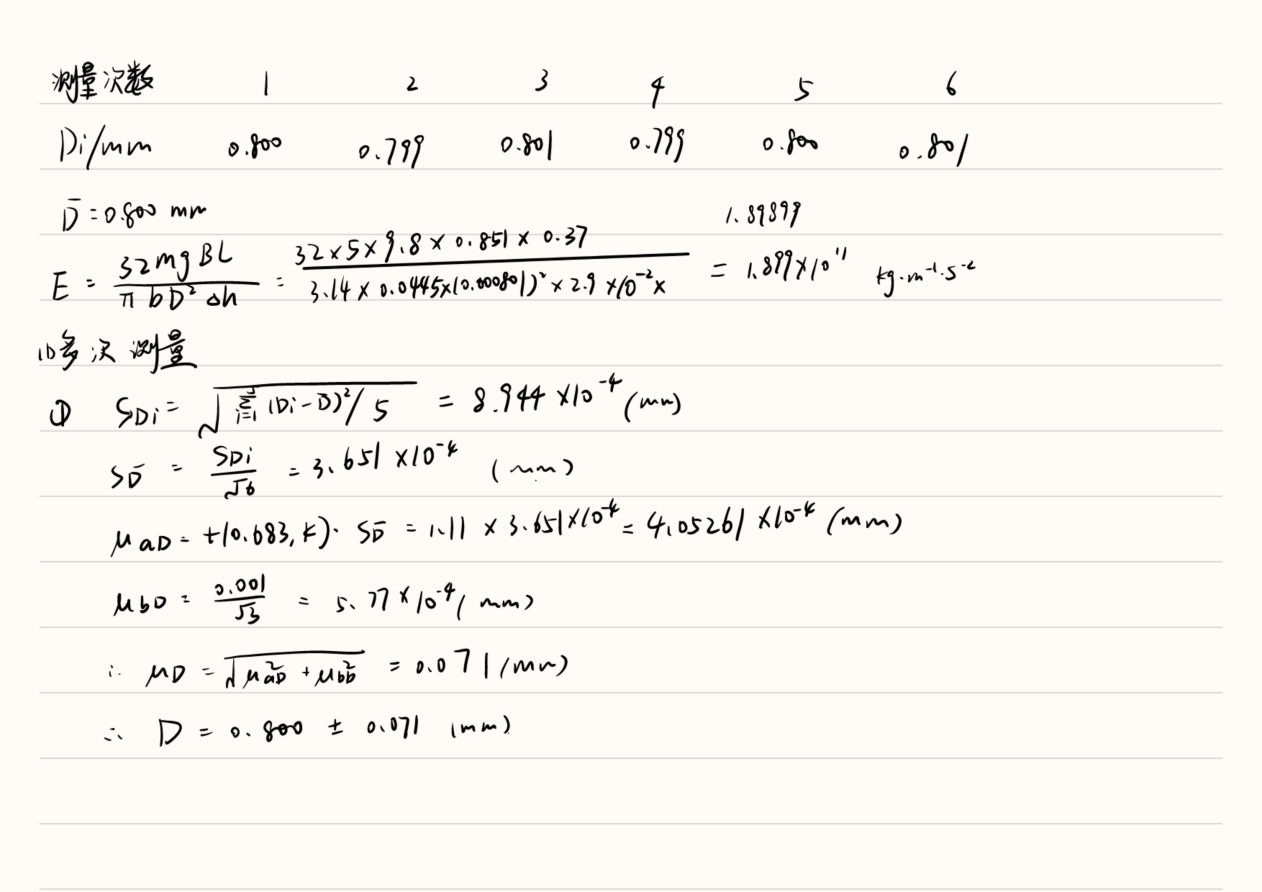 测量次数 1 2 3 4 5 6
Di/mm 0.800 0.799 0.801 0.799 0.800 0.801
D̄ = 0.800 mm
1.89899
E = 32mgBL / πbD²Δh = 32×5×9.8×0.851×0.37 / 3.14×0.0445×(0.000801)²×2.9×10⁻²× = 1.899×10¹¹ kg·m⁻¹·s⁻²
(1)多次测量
① SDi = √(Σi=1 (Di-D̄)²/5) = 8.944×10⁻⁴ (mm)
SD̄ = SDi/√6 = 3.651×10⁻⁴ (mm)
μaD = t(0.683, k)· SD̄ = 1.11 × 3.651×10⁻⁴ = 4.05261×10⁻⁴ (mm)
μbD = 0.001/√3 = 5.77×10⁻⁴ (mm)
∴ μD = √(μaD² + μbD²) = 0.071 (mm)
∴ D = 0.800 ± 0.071 (mm)